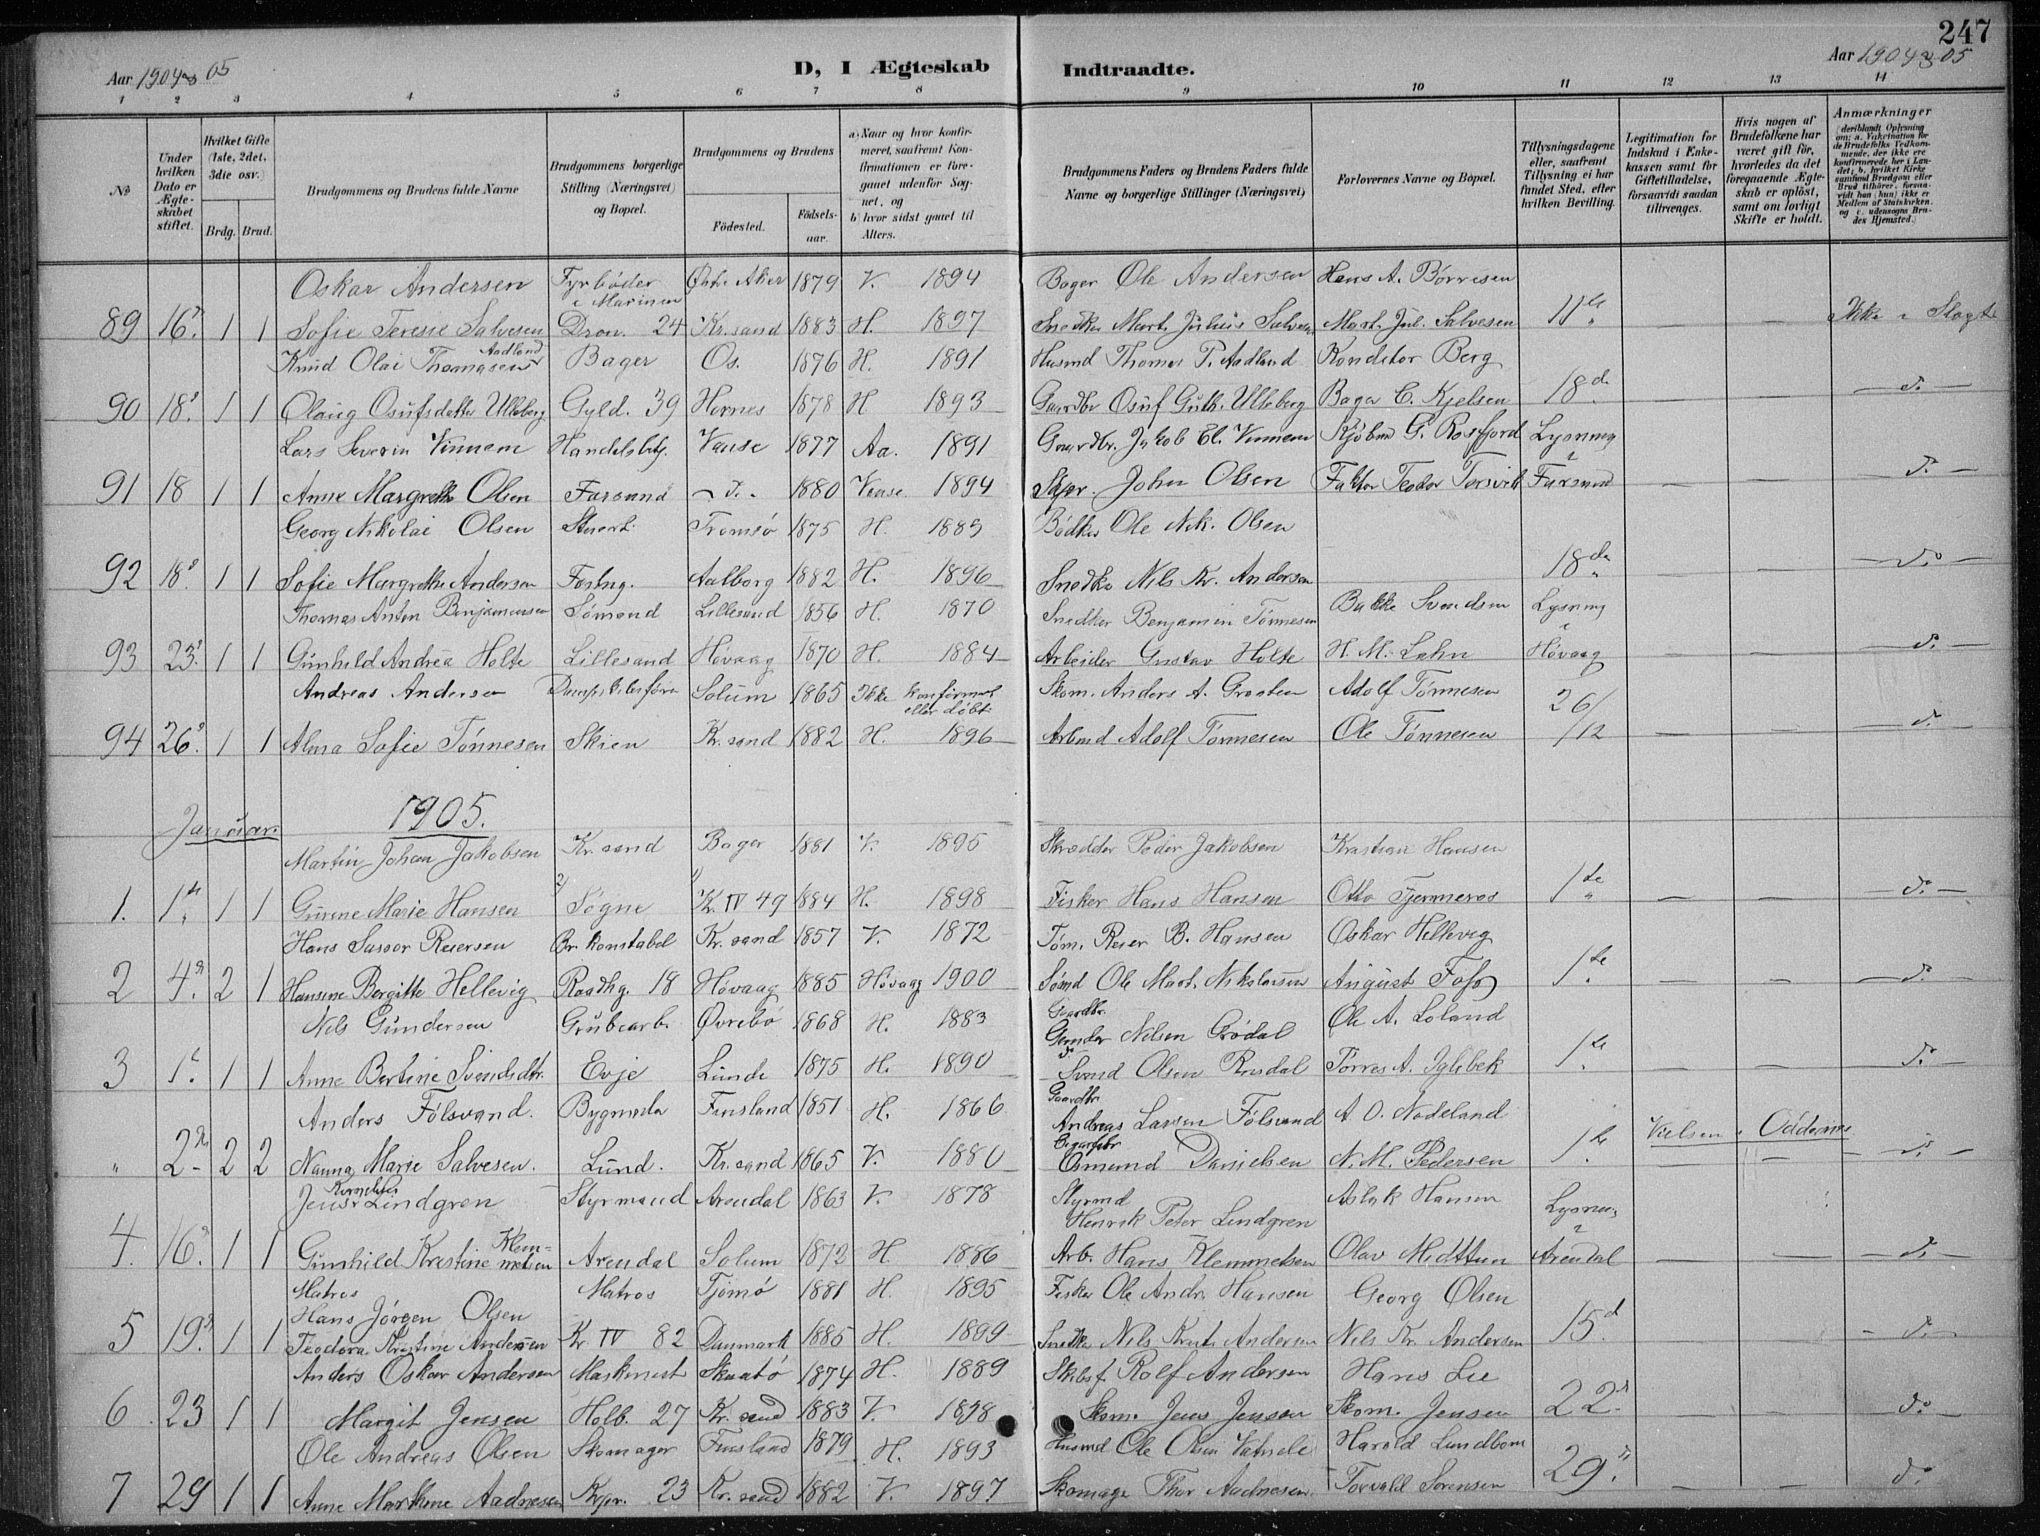 247
Aar 1904 & 05
D, I Ægteskab Indtraadte.
Aar 1904 & 05
1 2 3 4 5 6 7 8 9 10 11 12 13 14
No.
Under hvilken Dato er Ægteskabet stiftet.
Hvilket Gifte (1ste, 2det, 3die osv.)
Brdg. Brud.
Brudgommens og Brudens fulde Navne
Brudgommens borgerlige Stilling (Næringsvei) og Bopæl.
Brudgommens og Brudens
Fødested.
Fødselsaar.
a) Naar og hvor konfirmeret, saafremt Konfirmationen er foregaaet udenfor Sognet, og
b) hvor sidst gaaet til Alters.
Brudgommens Faders og Brudens Faders fulde Navne og borgerlige Stillinger (Næringsvei)
Forlovernes Navne og Bopæl.
Tillysningsdagene eller, saafremt Tillysning ei har fundet Sted, efter hvilken Bevilling.
Legitimation for Indskud i Enkekassen samt for Giftetilladelse, forsaavidt saadan tiltrænges.
Hvis nogen af Brudefolkene har været gift før, hvorledes da det foregaaende Ægteskab er opløst, samt om lovligt Skifte er holdt.
Anmærkninger
Oskar Andersen Fyrbøder i Marinen Østre Aker 1879 V. 1894 Bager Ole Andersen Hans A. Børresen
89 16. 1 1 Sofie Terese Salvesen Dron. 24 Kr.sand 1883 H. 1897 Snedker Mart. Julius Salvesen Mart. Jul. Salvesen 11te — — Ikke i Slægt
Knud Olai Thomasen Aadland Bager Os. 1876 H. 1891 Husmd Thomas P. Aadland Konditor Berg
90 18. 1 1 Olaug Osufsdatter Ulleberg Gyld. 39 Hornes 1878 H 1893 Gaardbr Osuf Guth. Ulleberg Bager C. Kjelsen 18de — — do
Lars Severin Vinnem Handelsbtj. Vanse 1877 Aa. 1891 Gaardbr. Jakob El. Vinnem Kjøbmd G. Rosfjord Lysning
91 18 1 1 Anne Margrethe Olsen Farsund do 1880 Vanse 1894 Skpr. John Olsen Faktor Teodor Torsvik i Farsund — — do
Georg Nikolai Olsen Stuert. Tromsø 1875 H. 1889 Bødker Ole Nik. Olsen
92 18. 1 1 Sofie Margrethe Andersen Festng. Aalborg 1882 H. 1896 Snedker Nils Kr. Andersen 18de — — do
Thomas Anton Benjaminsen Sømand Lillesand 1856 H. 1870 Snedker Benjamin Tønnesen Bakke Svendsen Lysning
93 23. 1 1 Gunhild Andrea Holte Lillesand Høvaag 1870 H. 1884 Arbeider Gustav Holte H. M. Lahn i Høvaag — — do
Andreas Andersen Solum 1865 Ikke konfirmert eller døbt Skom. Anders A. Graaten Adolf Tønnesen 26/
94 26. 1 1 Alma Sofie Tønnesen Skien Kr.sand 1882 H. 1896 Arbmd Adolf Tønnesen Ole Tønnesen /12 — — do
1905.
Januar.
Martin Johan Jakobsen Kr.sand Bager 1881 V. 1895 Skrædder Peder Jakobsen Kristian Hansen
1. 1. 1 1 Gurine Marie Hansen 2) Søgne 1) Kr. IV 49 1884 H. 1898 Fisker Hans Hansen Otto Fjermeros 1te — — do
Hans Sasser Reiersen Br. konstabel Kr.sand 1857 V. 1872 Tøm. Reier B. Hansen Oskar Hellevig
2 4. 2 1 Hansine Bergitte Hellevig Raadhg. 18 Høvaag 1885 Høvaag 1900 Sømd Ole Mart. Nikolaisen August Foss 1te — — do
Nils Gundersen Grubearb. Øvrebø 1868 H. 1883 Gaardbr. Gunder Nilsen Grødal Ole A. Loland
3 1. 1 1 Anne Bertine Svendsdtr. Evje Lunde 1875 H. 1890 do Svend Olsen Rusdal Torres A. Iglebek 1te — — do
Anders Følsvand. Bygmada Finsland 1851 H. 1866 Gaardbr Andreas Larsen Følsvand A. O. Nodeland
" 2. 2 2 Nanna Marie Salvesen. Lund. Kr.sand 1865 V. 1880 Osmund Danielsen N. M. Pedersen 1te Vielsen i Oddernes — do
Jens Kornelius Lindgren Styrmand Arendal 1863 V. 1878 Styrmd Henrik Peter Lindgren Aslak Hansen Lysning
4. 16. 1 1 Gunhild Kristine Klemmetsen Arendal Solum 1872 H. 1886 Arb. Hans Klemmetsen Olav Midttun i Arendal — — do
Matros Hans Jørgen Olsen Matros Tjømø 1881 H. 1895 Fisker Ole Andr. Hansen Georg Olsen
5 19. 1 1 Teodora Kristine Andersen Kr IV 82 Danmark 1885 H. 1899 Snedker Nils Krist. Andersen Nils Kr. Andersen 15d. — — do
Anders Oskar Andersen Maskinist Skaatø 1874 H. 1889 Skibsf. Rolf Andersen Hans Lie
6 23 1 1 Margit Jensen Holb. 27 Kr.sand 1883 V. 1898 Skom. Jens Jensen Skom. Jensen 22. — — do
Ole Andreas Olsen Skomager Finsland 1879 H. 1893 Husmd Ole Olsen Harald Lundbom
7 29 1 1 Anne Martine Aadnesen Kr.sand 1882 V. 1897 Skomager Thor Aadnesen. Torvald Sørensen 29. do